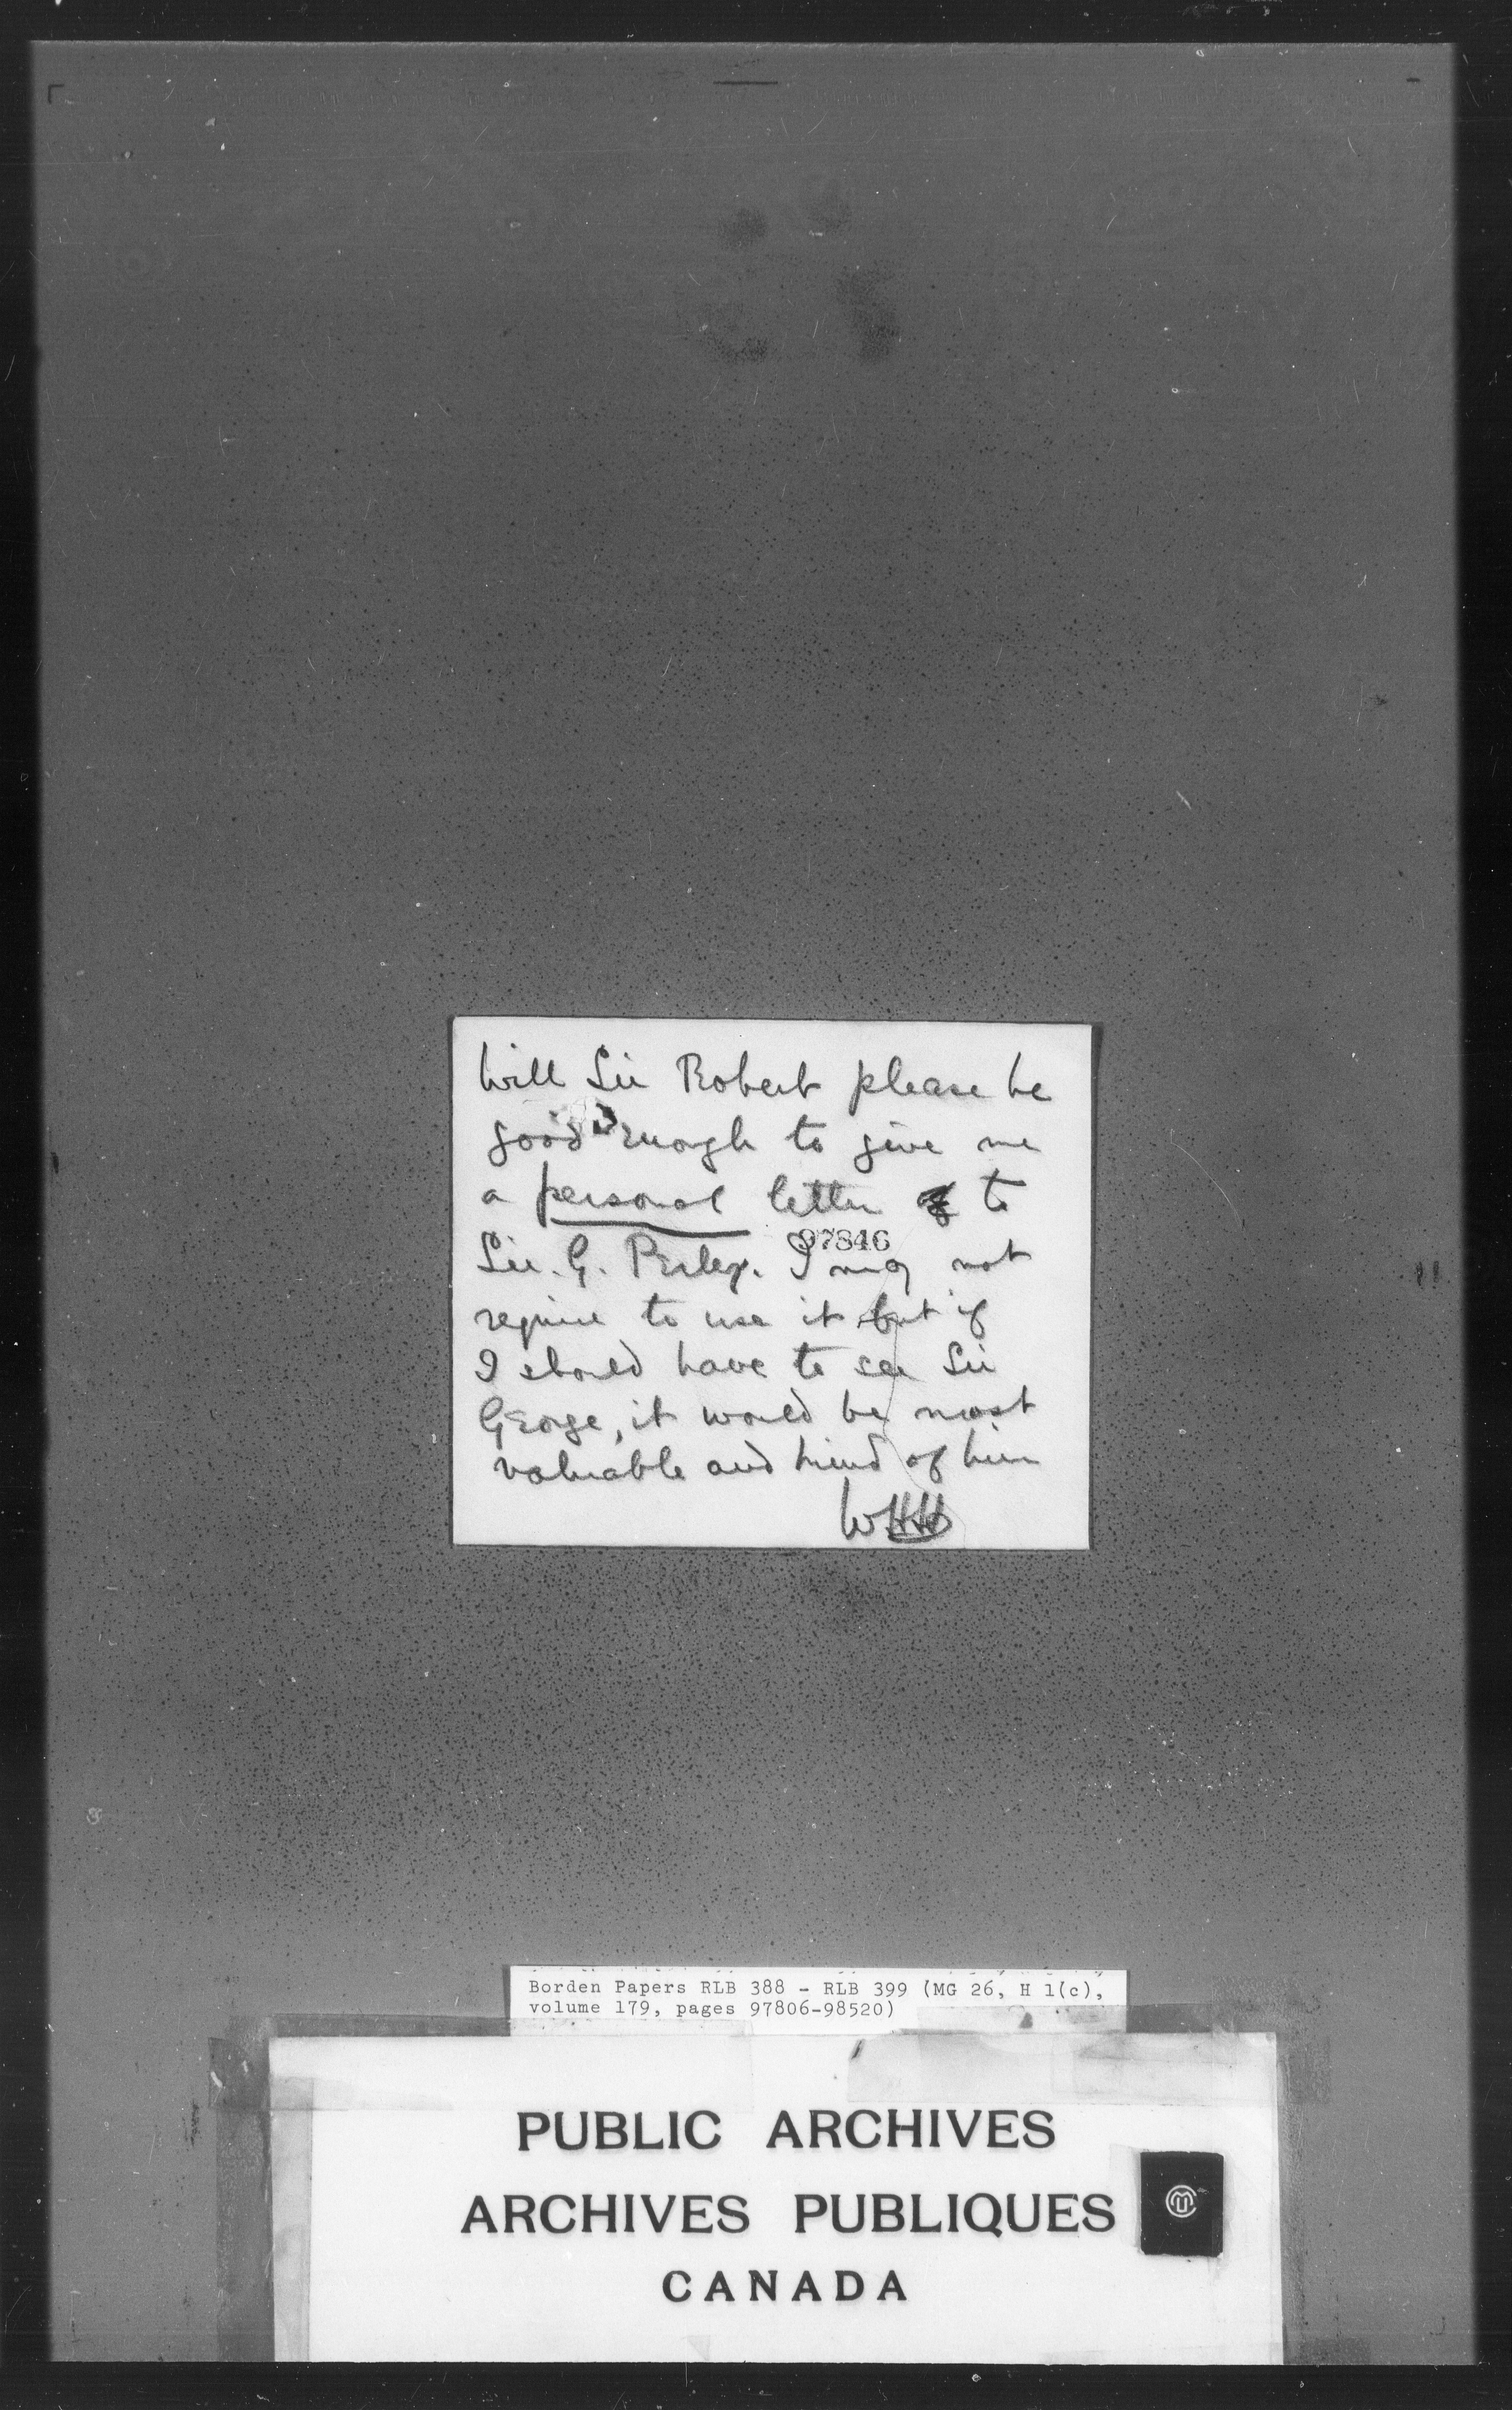 Will Sir Robert please be
good enough to give me
a personal letter to
97846
Sir. G. Perley. I may not
require to use it but if
I should have to see Sir
George, it would be most
valuable and kind of him
WHH
Borden Papers RLB 388 - RLB 399 (MG 26, H 1(c),
volume 179, pages 97806-98520)
PUBLIC ARCHIVES
ARCHIVES PUBLIQUES
CANADA